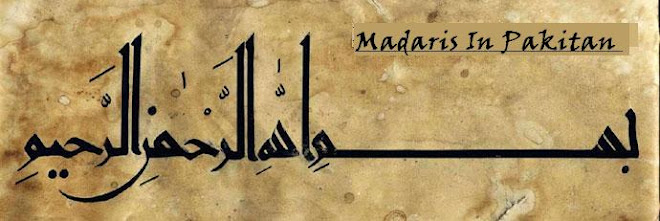 Madaris In Pakitan
بسم الله الرَّحْمٰنِ الرَّحِيمِ